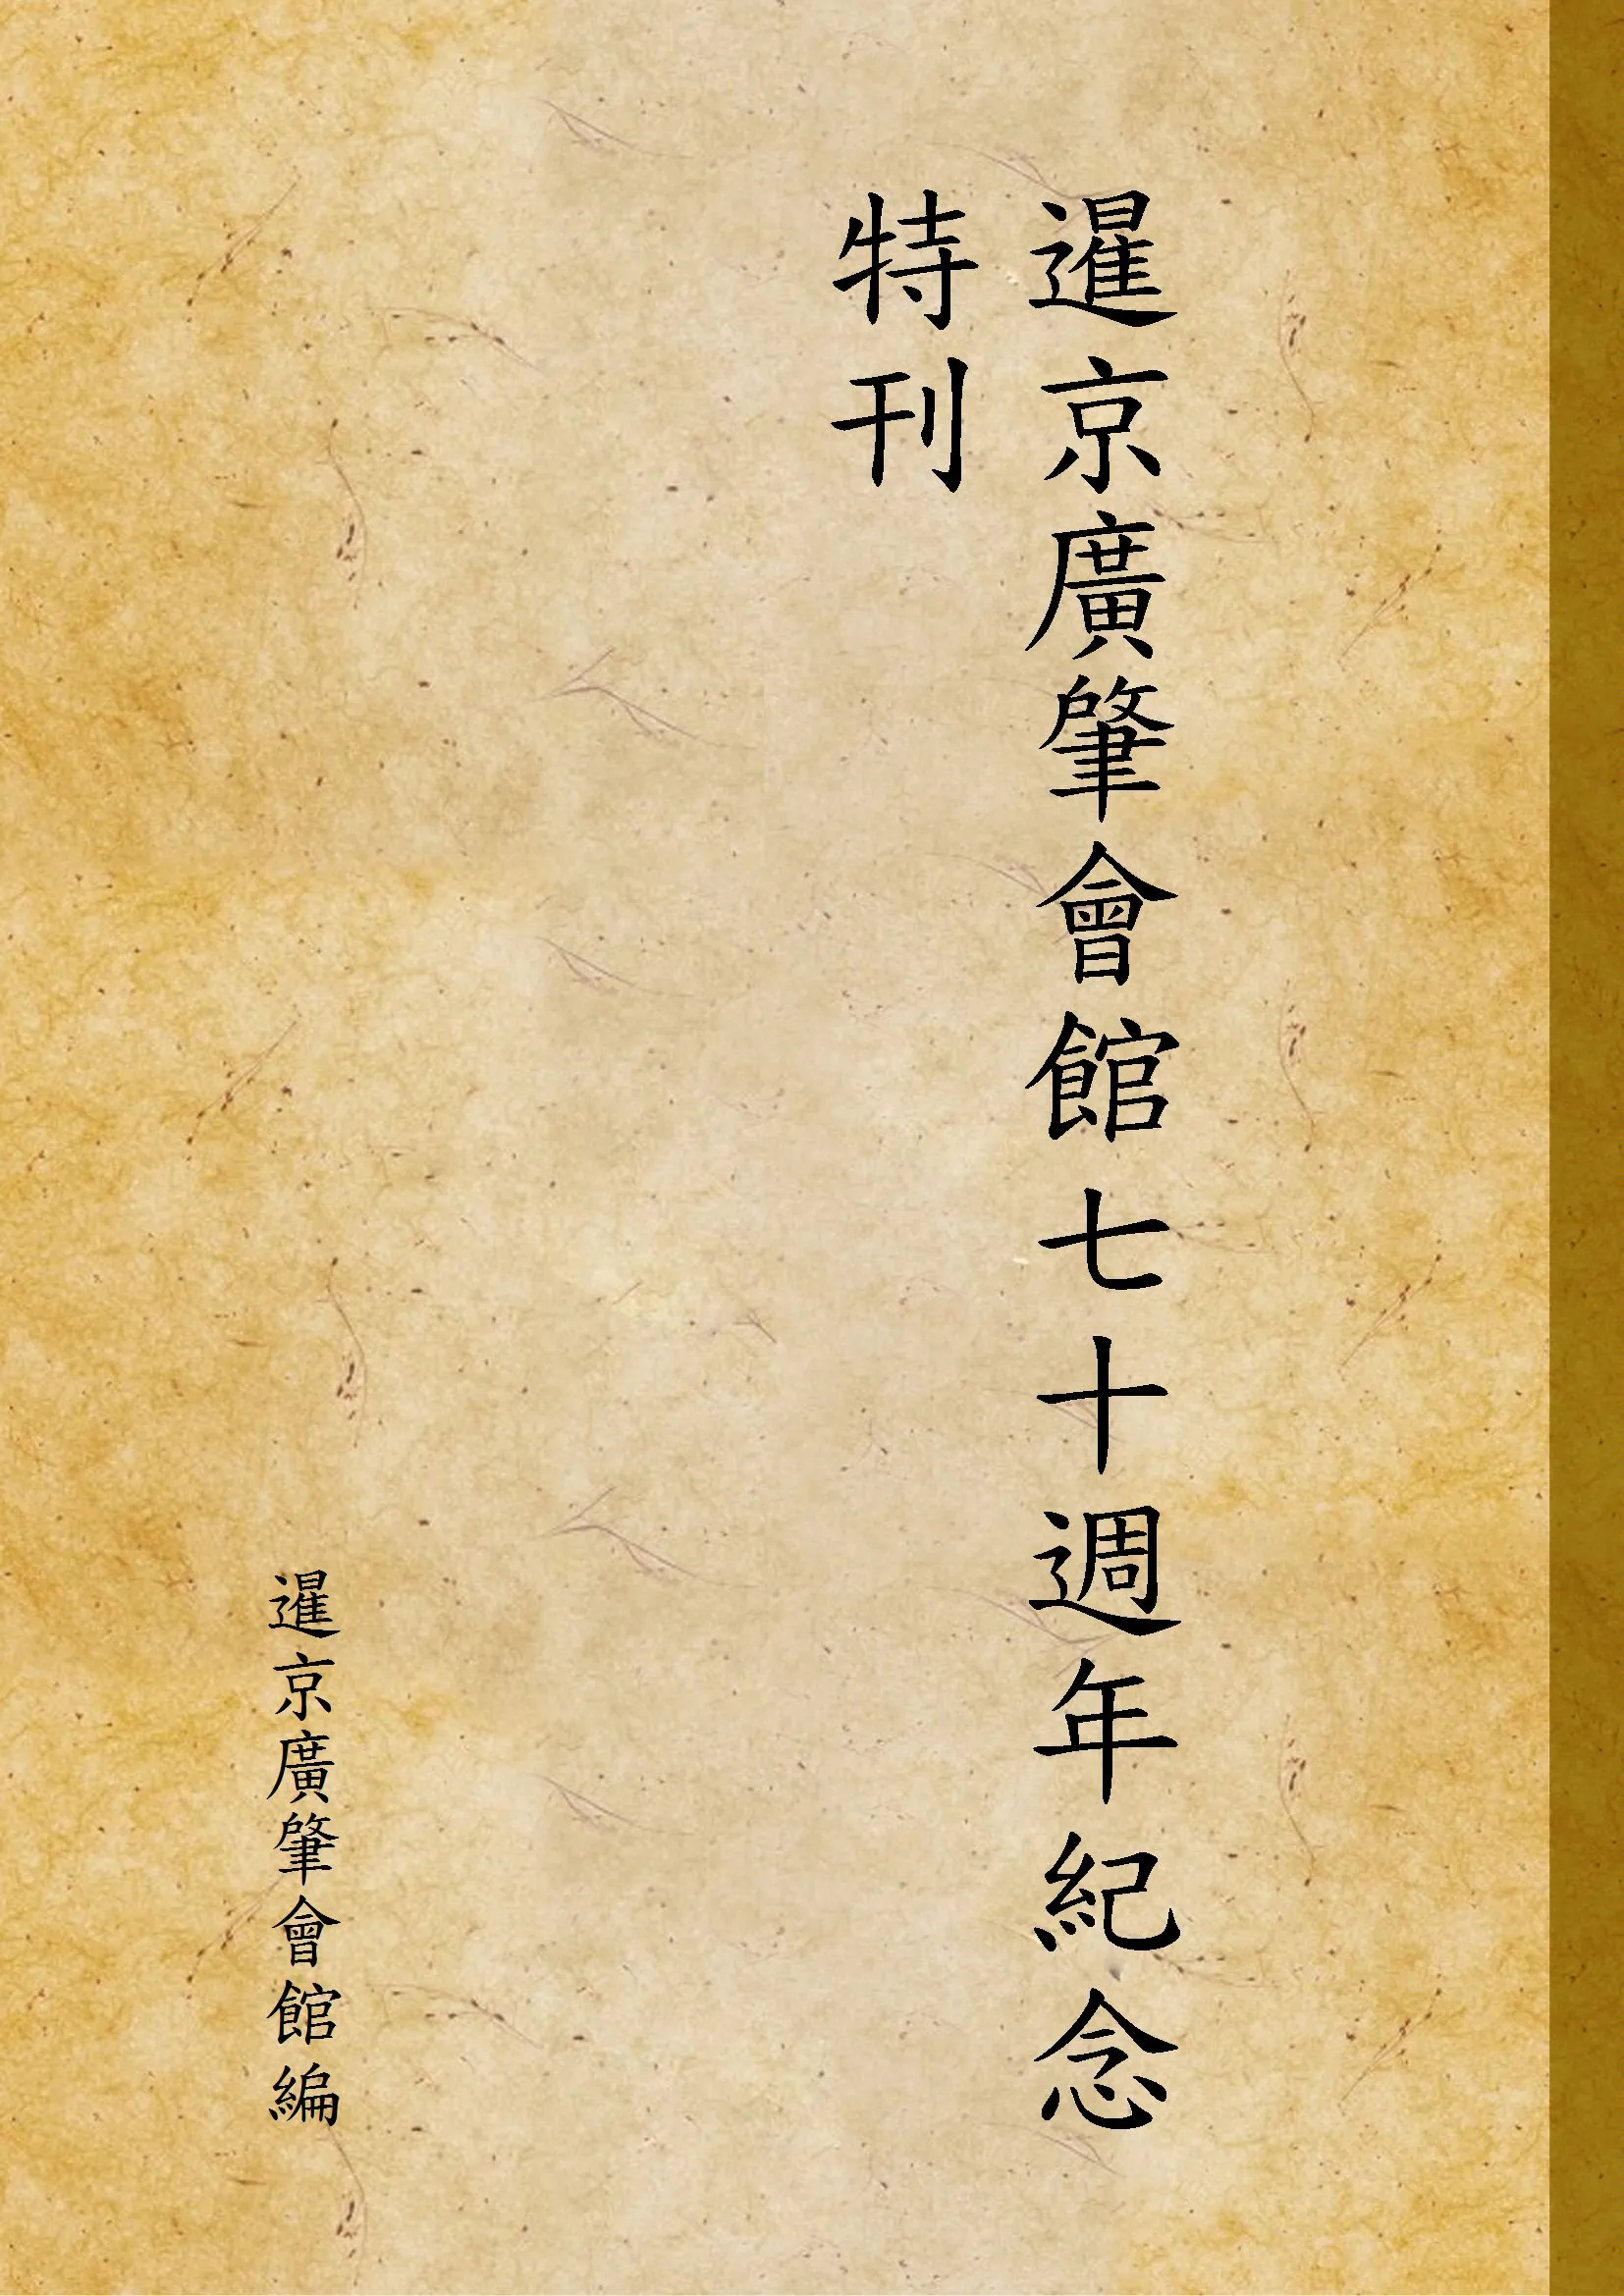 暹京廣肇會館七十週年紀念
特刊
暹京廣肇會館編